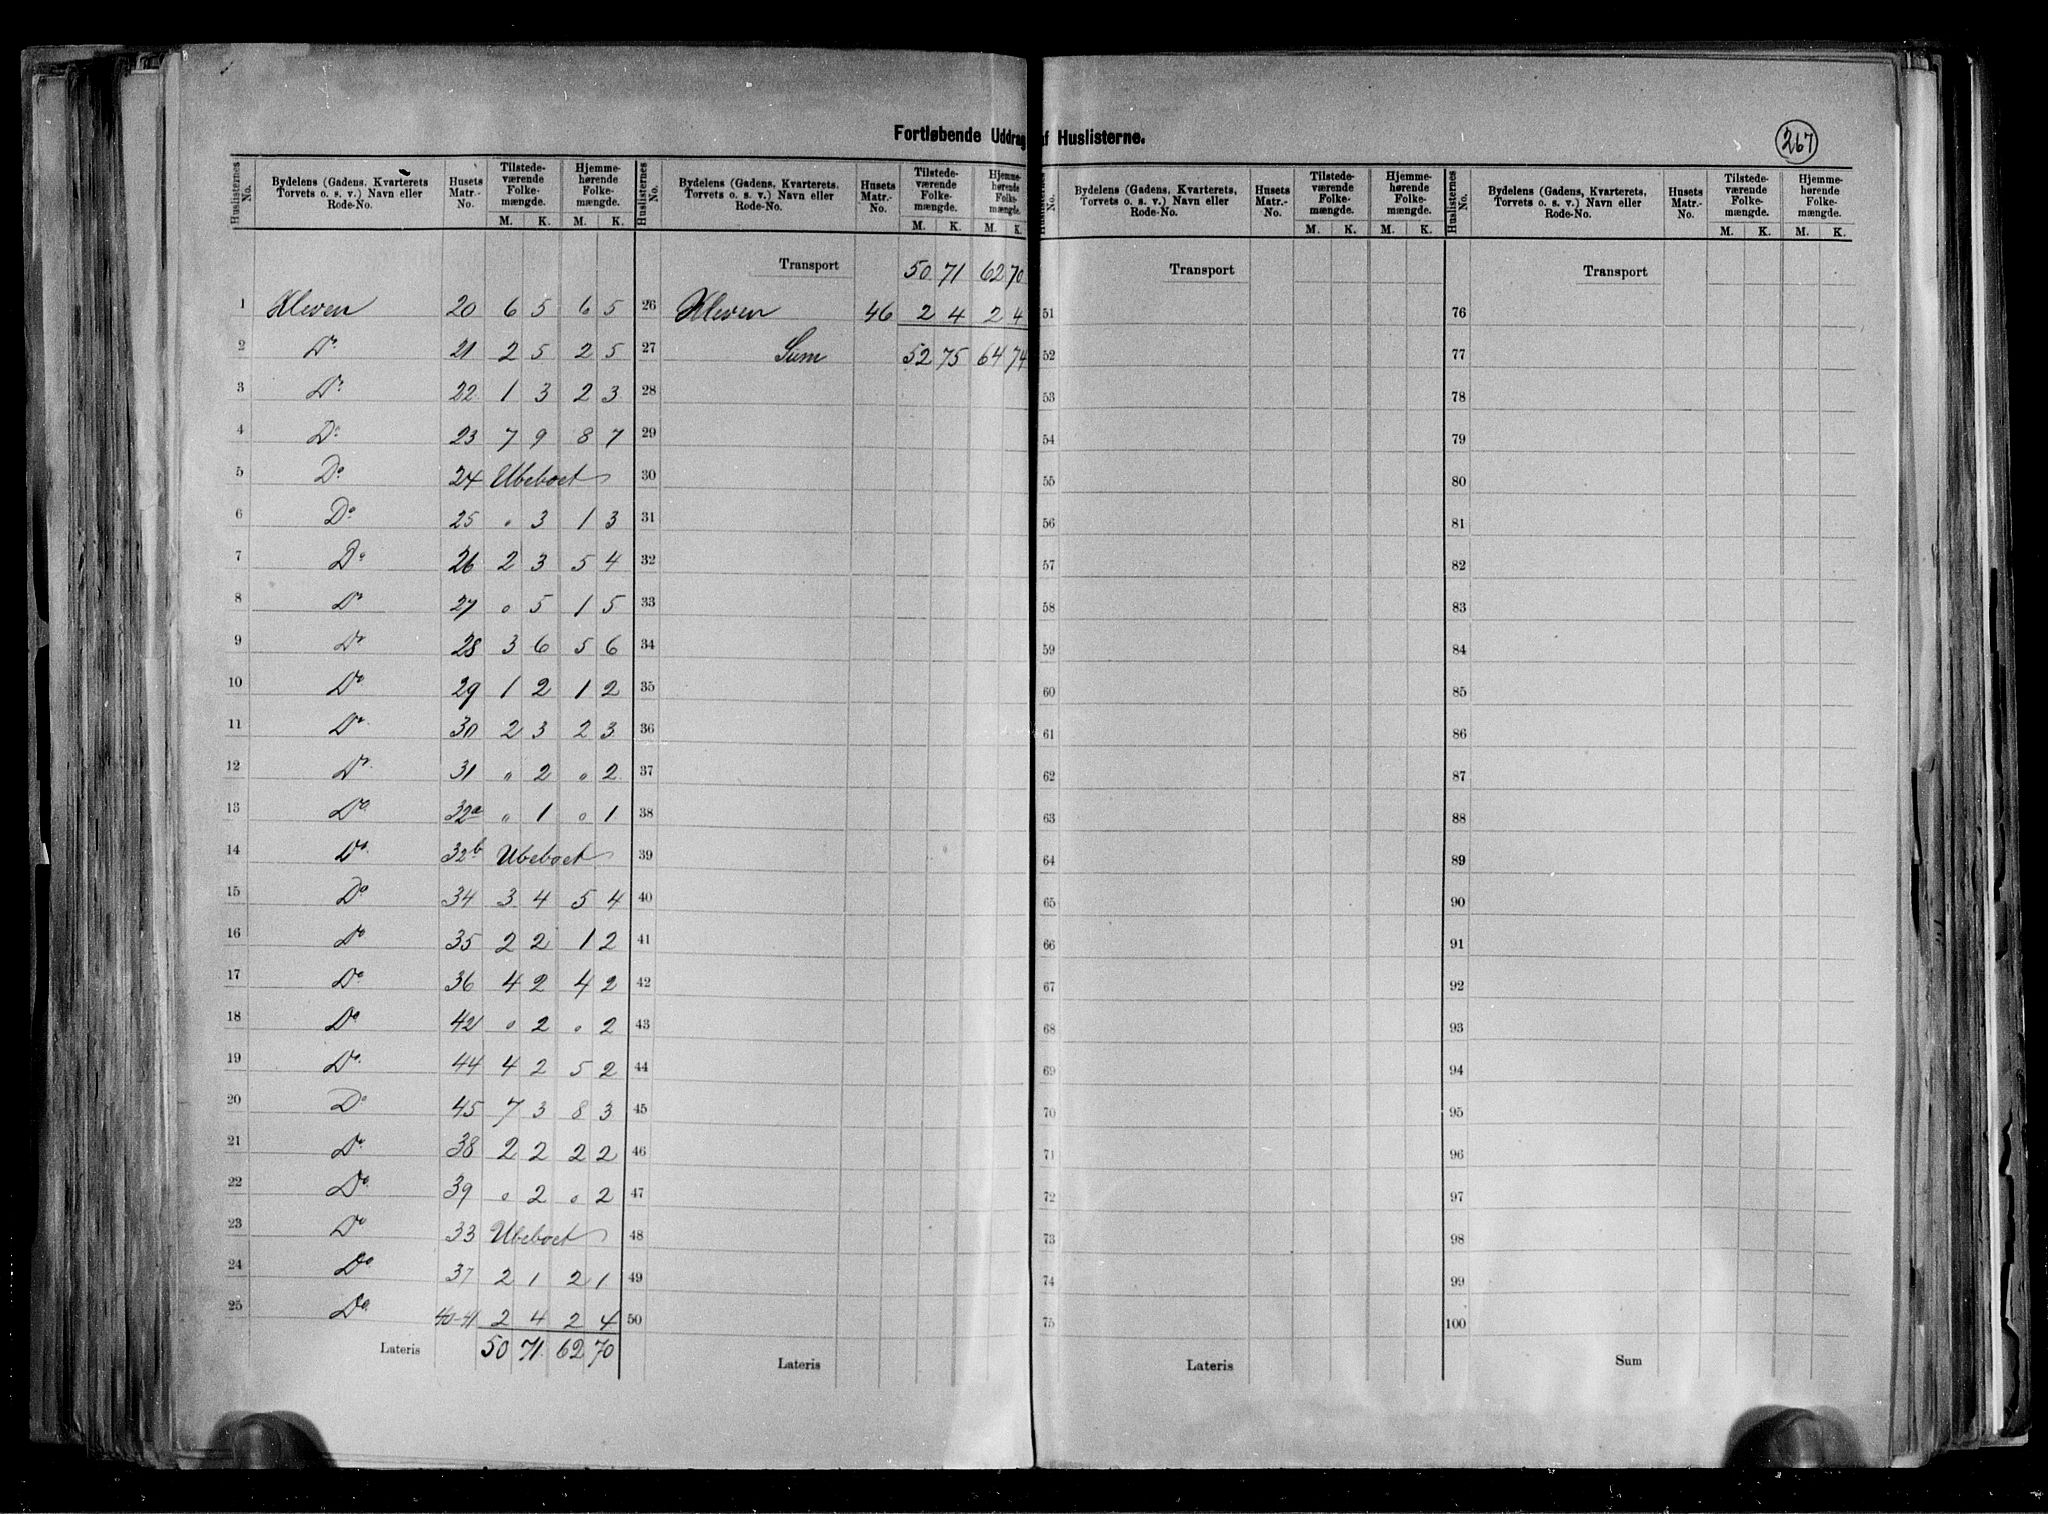 Fortløbende Uddrag af Huslisterne.
267
Huslisternes No. Bydelens (Gadens, Kvarterets Torvets o. s. v.) Navn eller Rode-No. Husets Matr.-No. Tilstede-værende Folke-mængde. M. K. Hjemme-hørende Folke-mængde. M. K.
1 Kleven 20 6 5 6 5
2 Do 21 2 5 2 5
3 Do 22 1 3 2 3
4 Do 23 7 9 8 7
5 Do 24 Ubeboet
6 Do 25 " 3 1 3
7 Do 26 2 3 5 4
8 Do 27 " 5 1 5
9 Do 28 3 6 5 6
10 Do 29 1 2 1 2
11 Do 30 2 3 2 3
12 Do 31 " 2 " 2
13 Do 32a " 1 " 1
14 Do 32b Ubeboet
15 Do 34 3 4 5 4
16 Do 35 2 2 1 2
17 Do 36 4 2 4 2
18 Do 42 " 2 " 2
19 Do 44 4 2 5 2
20 Do 45 7 3 8 3
21 Do 38 2 2 2 2
22 Do 39 " 2 " 2
23 Do 33 Ubeboet
24 Do 37 2 1 2 1
25 Do 40-41 2 4 2 4
Lateris 50 71 62 70
Huslisternes No. Bydelens (Gadens, Kvarterets, Torvets o. s. v.) Navn eller Rode-No. Husets Matr.-No. Tilstede-værende Folke-mængde. M. K. Hjemme-hørende Folke-mængde. M. K.
Transport 50 71 62 70
26 Kleven 46 2 4 2 4
27 Sum 52 75 64 74
28
29
30
31
32
33
34
35
36
37
38
39
40
41
42
43
44
45
46
47
48
49
50
Lateris
Huslisternes No. Bydelens (Gadens, Kvarterets, Torvets o. s. v.) Navn eller Rode-No. Husets Matr.-No. Tilstede-værende Folke-mængde. M. K. Hjemme-hørende Folke-mængde. M. K.
Transport
51
52
53
54
55
56
57
58
59
60
61
62
63
64
65
66
67
68
69
70
71
72
73
74
75
Lateris
Huslisternes No. Bydelens (Gadens, Kvarterets, Torvets o. s. v.) Navn eller Rode-No. Husets Matr.-No. Tilstede-værende Folke-mængde. M. K. Hjemme-hørende Folke-mængde. M. K.
Transport
76
77
78
79
80
81
82
83
84
85
86
87
88
89
90
91
92
93
94
95
96
97
98
99
100
Sum